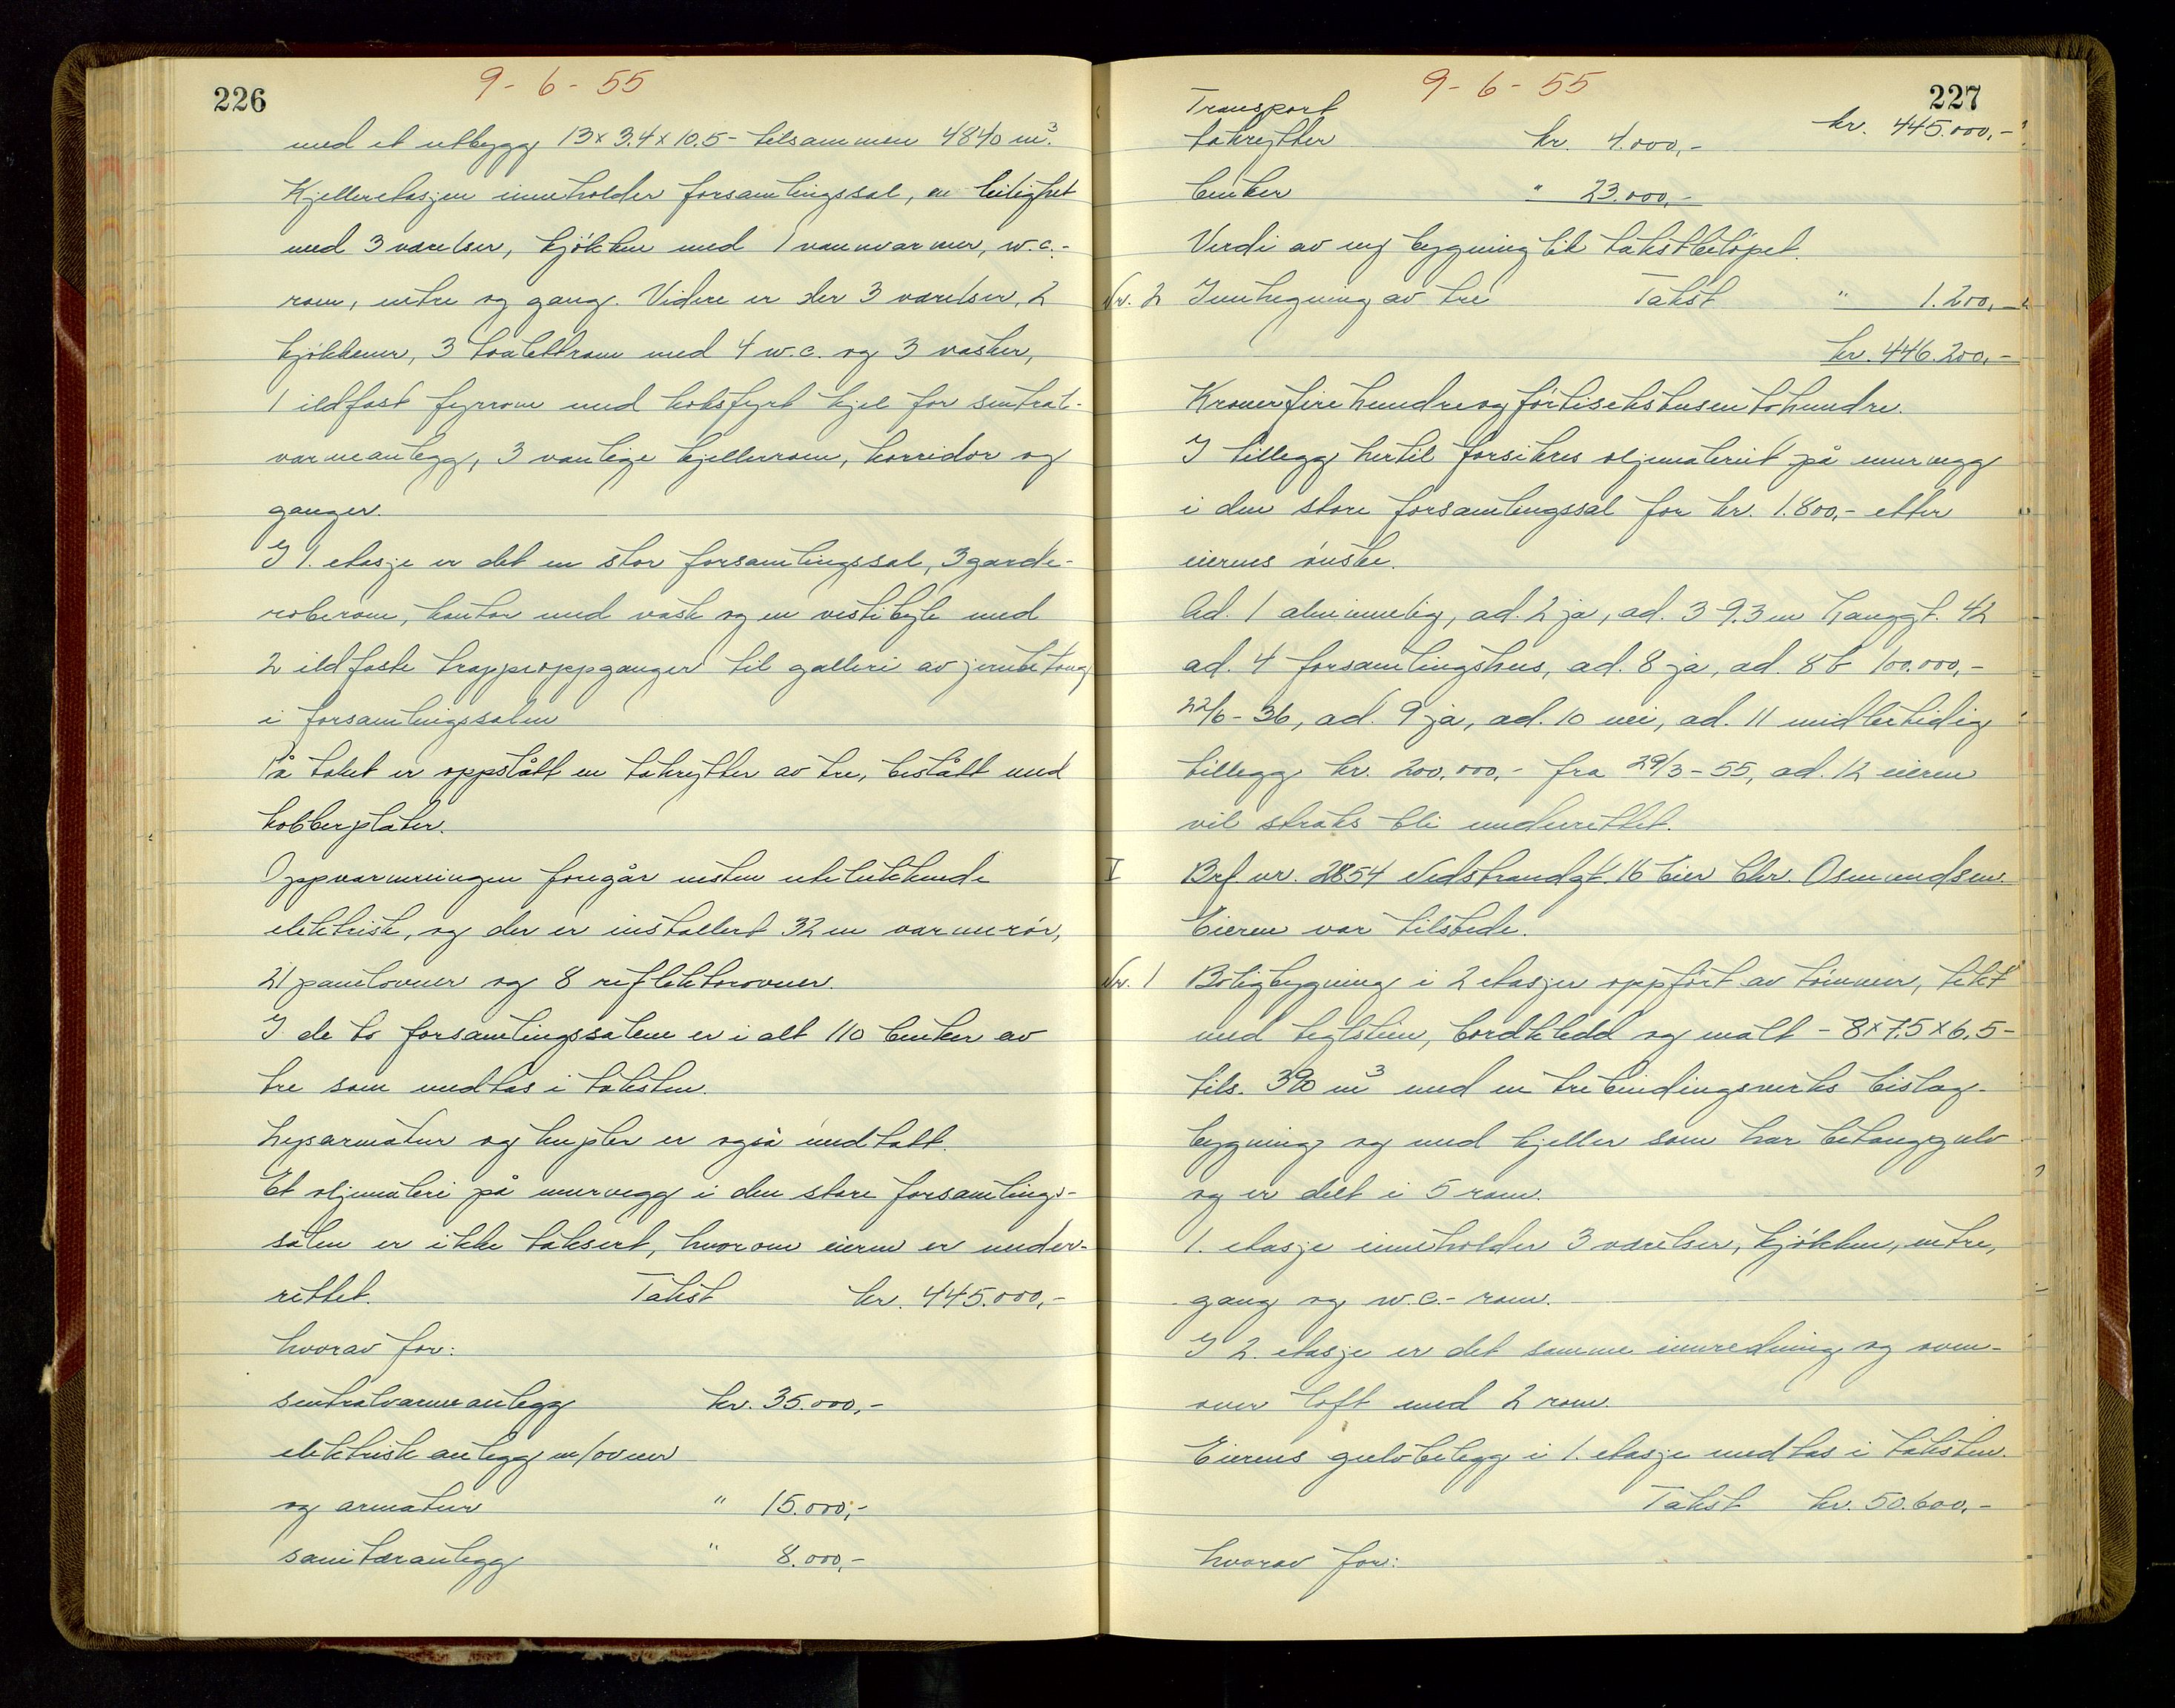 226
9-6-55
med et utbygg 13x3.4x10.5- tilsammen 4840 m³.
Kjelleretasjen inneholder forsamlingssal, en leilighet
med 3 værelser, kjökken med 1 vannvarmer, w.c.-
rom, entre og gang. Videre er der 3 værelser, 2
kjökkener, 3 toalettrom med 4 w.c. og 3 vasker,
1 ildfast fyrrom med koksfyrt kjel for sentral-
varmeanlegg, 3 vanlige kjellerrom, korridor og
ganger.
I 1. etasje er det en stor forsamlingssal, 3 garde-
roberom, kontor med vask og en vestibyle med
2 ildfaste trappeoppganger til galleri av jernbetong
i forsamlingssalen
På taket er oppslått en takrytter av tre, beslått med
kobberplater.
Oppvarmningen foregår nesten utelukkende
elektrisk, og der er installert 32 m varmerör,
21 panelovner og 8 reflektorovner.
I de to forsamlingssalene er i alt 110 benker av
tre som medtas i taksten.
Lysarmatur og kupler er også medtatt.
Et oljemaleri på murvegg i den store forsamlings-
salen er ikke taksert, hvorom eieren er under-
rettet. Takst kr. 445.000,-
hvorav for:
sentralvarmeanlegg kr. 35.000,-
elektrisk anlegg m/ovner
og armatur " 15.000,-
sanitæranlegg " 8.000,-
227
9-6-55
Transport kr. 445.000,-
takrytter kr. 4.000,-
benker " 23.000,-
Verdi av ny bygning lik takstbelöpet.
Nr. 2 Innhegning av tre Takst " 1.200,-
kr. 446.200,-
Kroner fire hundre og förtisekstusen tohundre.
I tillegg hertil forsikres oljemaleriet på murvegg
i den store forsamlingssal for kr. 1.800,- etter
eierens önske.
Ad. 1 alminnelig, ad. 2 ja, ad. 3 9.3 m Langgt. 42
ad. 4 forsamlingshus, ad. 8 ja, ad. 8 b 100.000,-
22/6-36, ad. 9 ja, ad. 10 nei, ad. 11 midlertidig
tillegg kr. 200.000,- fra 29/3-55, ad. 12 eieren
vil straks bli underrettet.
I Brf. nr. 2854 Nedstrandgt. 16 Eier Chr. Osmundsen.
Eieren var tilstede.
Nr. 1 Boligbygning i 2 etasjer oppfört av tömmer, tekt
med teglstein, bordkledd og malt - 8x7.5x6.5-
tils. 390 m³ med en tre bindingsverks bislag-
bygning og med kjeller som har betonggulv
og er delt i 5 rom.
1. etasje inneholder 3 værelser, kjökken, entre,
gang og w.c.- rom.
I 2. etasje er det samme innredning og oven-
over loft med 2 rom.
Eierens gulvbelegg i 1. etasje medtas i taksten.
Takst kr. 50.600,-
hvorav for: